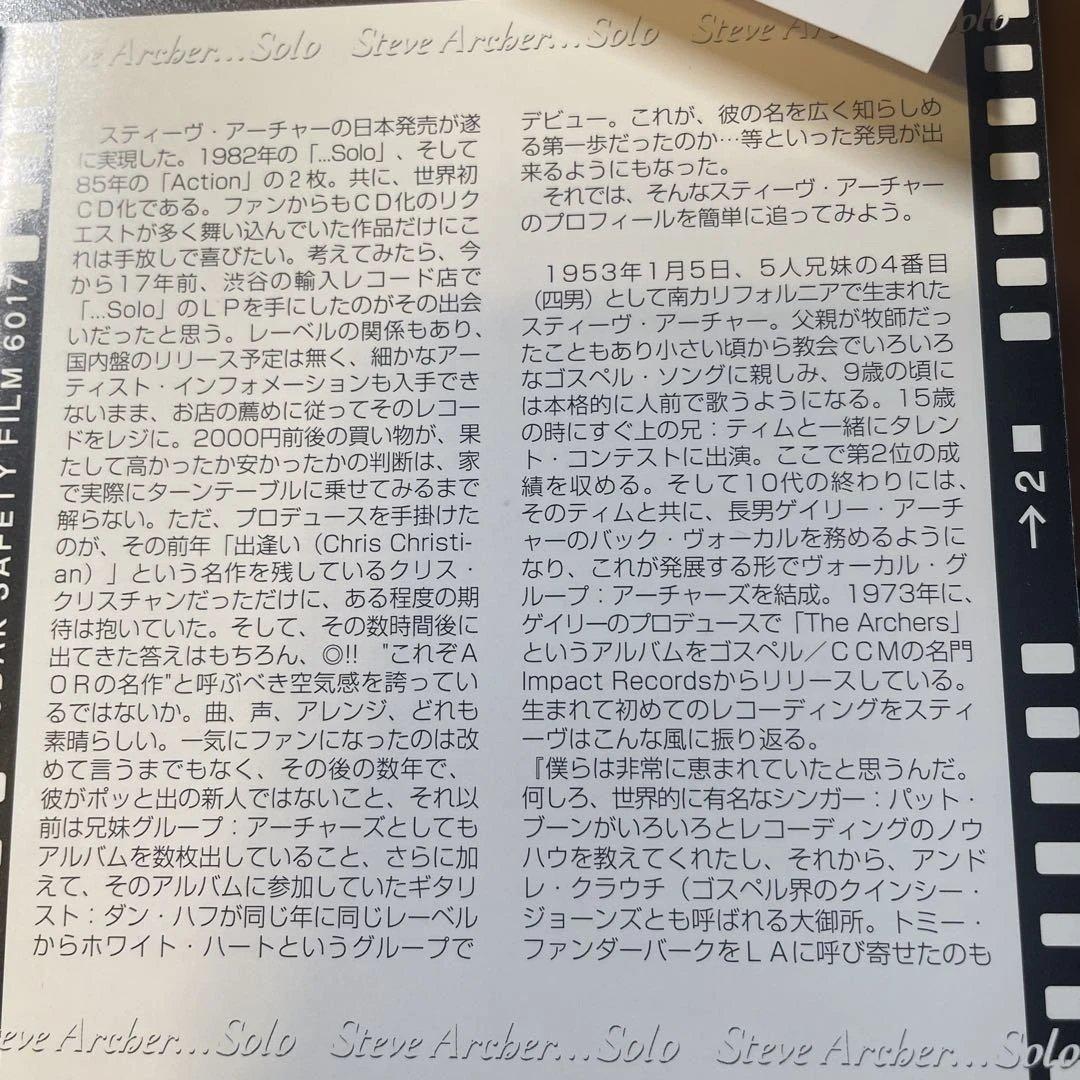 Steve Archer...Solo Steve Archer...Solo
スティーヴ・アーチャーの日本発売が遂
に実現した。1982年の「...Solo」、そして
85年の「Action」の２枚。共に、世界初
ＣＤ化である。ファンからもＣＤ化のリク
エストが多く舞い込んでいた作品だけにこ
れは手放しで喜びたい。考えてみたら、今
から１７年前、渋谷の輸入レコード店で
「...Solo」のＬＰを手にしたのがその出会
いだったと思う。レーベルの関係もあり、
国内盤のリリース予定は無く、細かなアー
ティスト・インフォメーションも入手でき
ないまま、お店の薦めに従ってそのレコー
ドをレジに。2000円前後の買い物が、果
たして高かったか安かったかの判断は、家
で実際にターンテーブルに乗せてみるまで
解らない。ただ、プロデュースを手掛けた
のが、その前年「出逢い（Chris Christi-
an）」という名作を残しているクリス・
クリスチャンだっただけに、ある程度の期
待は抱いていた。そして、その数時間後に
出てきた答えはもちろん、◎!! "これぞＡ
ＯＲの名作"と呼ぶべき空気感を誇ってい
るではないか。曲、声、アレンジ、どれも
素晴らしい。一気にファンになったのは改
めて言うまでもなく、その後の数年で、
彼がポッと出の新人ではないこと、それ以
前は兄妹グループ：アーチャーズとしても
アルバムを数枚出していること、さらに加
えて、そのアルバムに参加していたギタリ
スト：ダン・ハフが同じ年に同じレーベル
からホワイト・ハートというグループで
デビュー。これが、彼の名を広く知らしめ
る第一歩だったのか…等といった発見が出
来るようにもなった。
それでは、そんなスティーヴ・アーチャー
のプロフィールを簡単に追ってみよう。
1953年１月５日、５人兄妹の４番目
（四男）として南カリフォルニアで生まれた
スティーヴ・アーチャー。父親が牧師だっ
たこともあり小さい頃から教会でいろいろ
なゴスペル・ソングに親しみ、９歳の頃に
は本格的に人前で歌うようになる。１５歳
の時にすぐ上の兄：ティムと一緒にタレン
ト・コンテストに出演。ここで第2位の成
績を収める。そして10代の終わりには、
そのティムと共に、長男ゲイリー・アーチ
ャーのバック・ヴォーカルを務めるように
なり、これが発展する形でヴォーカル・グ
ループ：アーチャーズを結成。1973年に、
ゲイリーのプロデュースで「The Archers」
というアルバムをゴスペル／ＣＣＭの名門
Impact Recordsからリリースしている。
生まれて初めてのレコーディングをスティ
ーヴはこんな風に振り返る。
『僕らは非常に恵まれていたと思うんだ。
何しろ、世界的に有名なシンガー：パット・
ブーンがいろいろとレコーディングのノウ
ハウを教えてくれたし、それから、アンド
レ・クラウチ（ゴスペル界のクインシー・
ジョーンズとも呼ばれる大御所。トミー・
ファンダーバークをＬＡに呼び寄せたのも
Steve Archer...Solo Steve Archer...Solo Steve Archer...Solo
SAFETY FILM 6017
2